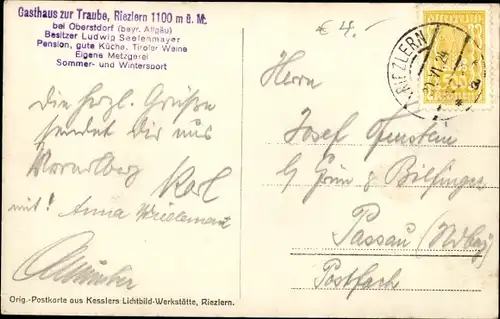 Gasthaus zur Traube, Riezlern 1100 m ü. M.
bei Oberstdorf (bayr. Allgäu)
Besitzer Ludwig Seelenmayer
Pension, gute Küche, Tiroler Weine
Eigene Metzgerei
Sommer- und Wintersport
€ 4.-
RIEZLERN
VI. 24
Die herzl. Grüße
sendet Dir aus
Vorarlberg
Karl
mit! Anna
Herrn
Josef
b/ Grün & Bilfinger
Passau (Ndby)
Postfach
Orig.-Postkarte aus Kesslers Lichtbild-Werkstätte, Riezlern.